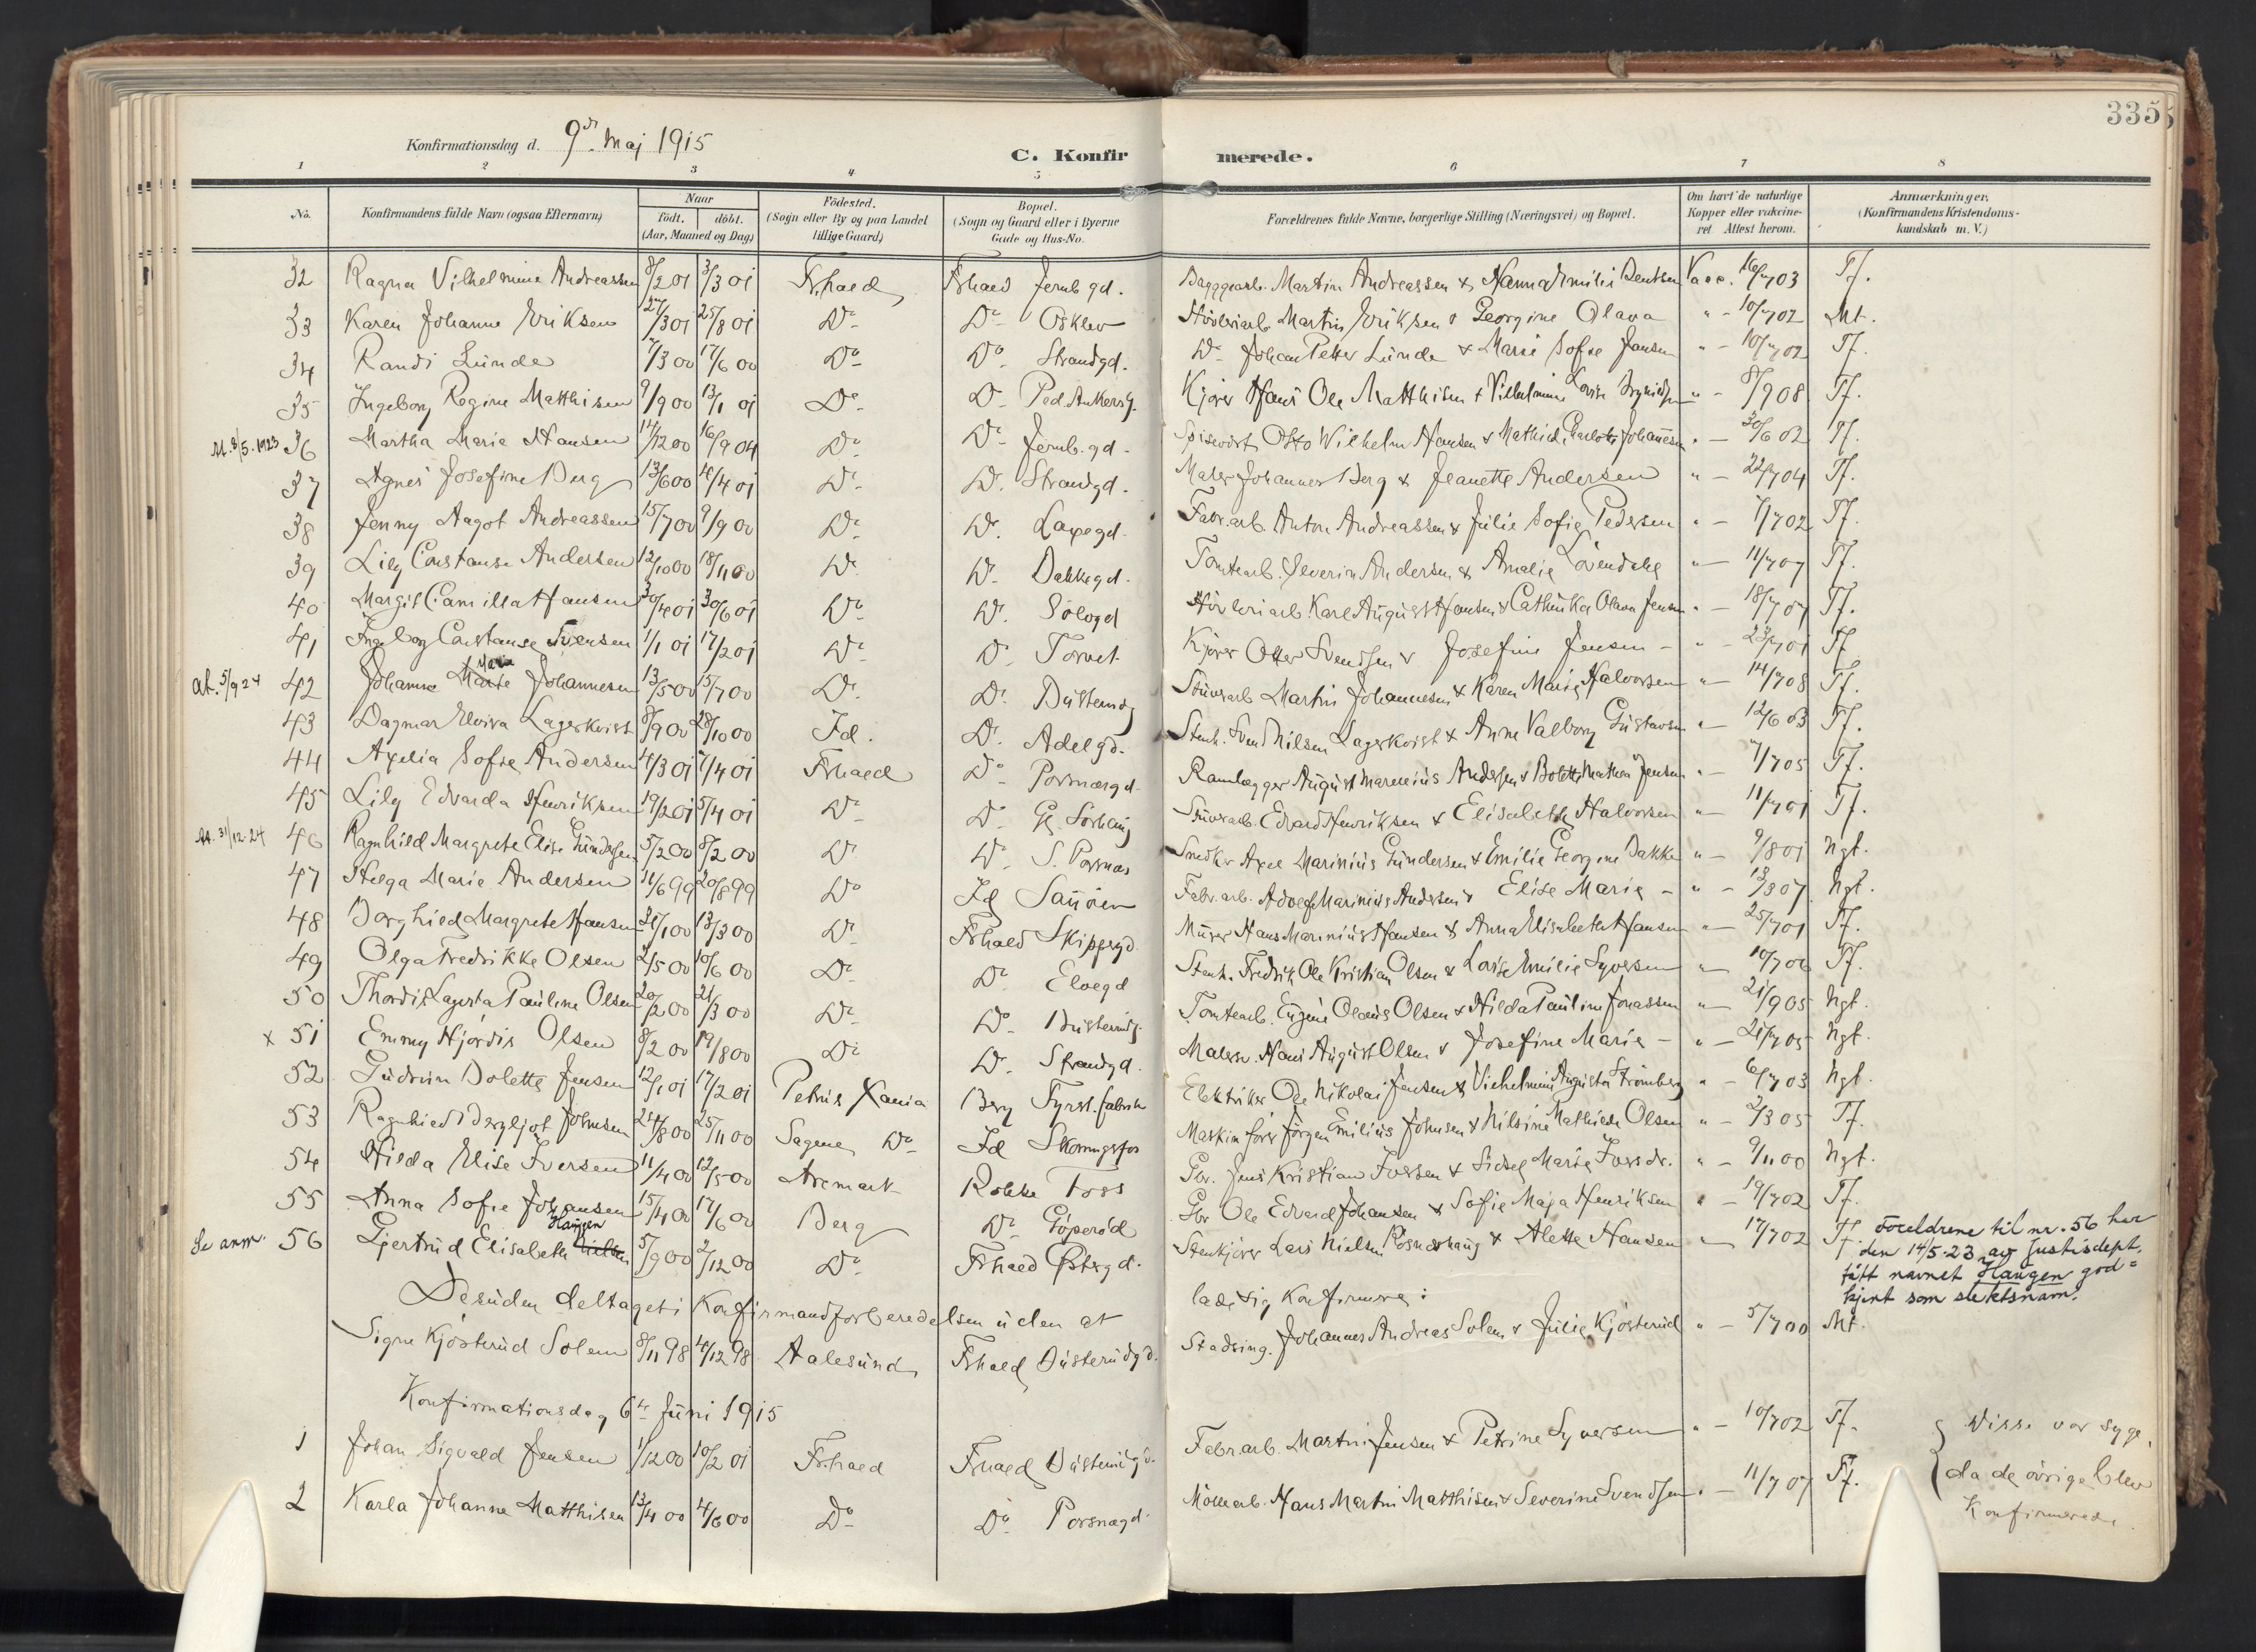 335
Konfirmationsdag d. 9de Maj 1915
C. Konfir merede.
1 2 3 4 5 6 7 8
No. Konfirmandens fulde Navn (ogsaa Efternavn) Naar Födt. döbt. (Aar, Maaned og Dag) Födested. (Sogn eller By og paa Landet tillige Gaard) Bopæl. (Sogn og Gaard eller i Byerne Gade og Hus-No. Forældrenes fulde Navne, borgerlige Stilling (Næringsvei) og Bopæl. Om havt de naturlige Kopper eller vakcineret Attest herom. Anmærkninger. (Konfirmandens Kristendomskundskab m. V.)
32 Ragna Vilhelmine Andreassen 8/2 01 3/3 01 Frhald Frhald Jernb.gd. Martin Andreassen & Hanna Emilie Bentsen Vacc. 16/7 03 Tf.
33 Karen Johanne Eriksen 27/3 01 25/8 01 Do Do Osklev Hövleriarb. Martin Eriksen & Georgine Olava " - 10/7 02 Mt.
34 Randi Lunde 7/3 00 17/6 00 Do Do Strandgd. Do Johan Petter Lunde & Marie Sofie Jansen " - 10/7 02 Tf.
35 Ingeborg Regine Matthisen 9/9 00 13/1 01 Do Do Ped. Ankersg. Kjörer Hans Ole Matthisen & Vilhelmine Lovise " - 8/9 08 Tf.
At. 8/5.1923 36 Martha Marie Hansen 14/12 00 16/9 04 Do Do Jernb.gd. Spisevert Otto Wilhelm Hansen & Mathilde Charlotte Johannesen " - 30/6 02 Tf.
37 Agnes Josefine Berg 13/6 00 4/4 01 Do Do Strandgd. Maler Johannes Berg & Jeanette Andersen " - 22/7 04 Tf.
38 Jenny Aagot Andreassen 15/7 00 9/9 00 Do Do Laxegd. Fabr.arb. Anton Andreassen & Julie Sofie Pedersen " - 7/7 02 Tf.
39 Lily Constanse Andersen 12/10 00 18/11 00 Do Do Bakkegd. Tomtearb. Severin Andersen & Amalie Lövendahl " - 11/7 07 Tf.
40 Margit Camilla Hansen 30/4 01 30/6 01 Do Do Sölvgd Hövleriarb. Karl August Hansen & Cathinka Olava Jensen " - 18/7 07 Tf.
41 Ingeborg Constanse Svensen 1/1 01 17/2 01 Do Do Torvet Kjörer Otter Svendsen & Josefine Jensen " - 23/7 01 Tf
At. 5/9 24 42 Johanne Marie Maria Johannesen 13/5 00 15/7 00 Do Do Busterudg Stuverarb Martin Johannesen & Karen Marie Halvorsen " - 14/7 08 Tf.
43 Dagmar Elvira Lagerkvist 8/9 00 28/10 00 Id. Do Adelgd. Stenh. Sven Nilsen Lagerkvist & Anne Valborg Gustavsen " - 12/6 03 Tf.
44 Axelia Sofie Andersen 4/3 01 7/4 01 Frhald Do Porsnæsgd. Ramlægger August Marenius Andersen & Bolette Mathea Jensen " - 7/7 05 Tf.
45 Lily Edvarda Henriksen 19/2 01 5/4 01 Do Do Gl. Sörhaug Stuverarb. Edvard Henriksen & Elisabeth Halvorsen " - 11/7 01 Tf.
At. 31/12-24 46 Ragnhild Margrete Elise Gundersen 5/2 00 8/2 00 Do Do S. Porsnæs Snedker Axel Marinius Gundersen & Emilie Georgine Bakke " - 9/8 01 Ngt.
47 Helga Marie Andersen 11/6 99 20/8 99 Do Id Sauöen Fabr.arb. Adolf Marinius Andersen & Elise Marie - " - 13/3 07 Ngt.
48 Borghild Margrete Hansen 31/1 00 18/3 00 Do Frhald Skippergd. Murer Hans Marinius Hansen & Anna Elisabeth Hansen " - 25/7 01 Tf.
49 Olga Fredrikke Olsen 2/5 00 10/6 00 Do Do Elvegd Stenh. Fredrik Ole Kristian Olsen & Lovise Emilie Syversen " - 10/7 06 Tf.
50 Thordis Lagerta Pauline Olsen 20/2 00 21/3 00 Do Do Busterudg. Tomtearb. Eugene Olaus Olsen & Hilda Pauline Jonassen " - 21/9 05 Ngt.
x 51 Emmy Hjördis Olsen 8/2 00 19/8 00 Do Do Strandgd. Malersv. Hans August Olsen & Josefine Marie - " - 21/7 05 Ngt.
52 Gudrun Bolette Jensen 12/1 01 17/2 01 Petrus Xania Berg Fyrst.fabrik Elektriker Ole Nikolai Jensen & Vilhelmine Augusta Strömberg " - 6/7 03 Ngt.
53 Ragnhild Bergljot Johnsen 24/8 00 25/11 00 Sagene Do Id Skonningsfos Maskinförer Jörgen Emilius Johnsen & Nilsine Mathilde Olsen " - 2/3 05 Tf.
54 Hilda Elise Iversen 11/4 00 12/5 00 Aremark Rokke Foss Gbr. Jens Kristian Iversen & Sidsel Marie Iversdr. " - 9/11 00 Ngt.
55 Anna Sofie Johansen 15/4 00 17/6 00 Berg Do Göperöd Gbr Ole Edvard Johansen & Sofie Maja Henriksen " - 19/7 02 Tf.
Se anm. 56 Gjertrud Elisabeth Nielsen Haugen 5/9 00 2/12 00 Do Frhald Östergd. Stenkjörer Lars Nielsen Posneshaug & Alette Hansen " - 17/7 02 Tf. Foreldrene til nr. 56 har
den 14/5-23 av Justisdept.
fått navnet Haugen god=
kjent som slektsnavn.
Desuden deltaget i Konfirmandforberedelsen uden at lade sig Konfirmere:
Signe Kjösterud Solem 8/11 98 4/12 98 Aalesund Frhald Busterudgd. Stadsing. Johannes Andreas Solem & Julie Kjösterud " - 5/7 00 Mt.
Konfirmationsdag 6te Juni 1915
1 Johan Sigvald Jensen 1/12 00 10/2 01 Frhald Frhald Busterudgd. Fabr.arb. Martin Jensen & Petrine Syversen " - 10/7 02 Tf. Disse var syge,
2 Karla Johanne Matthisen 13/4 00 4/6 00 Do Do Porsnæsgd. Möllearb. Hans Martin Matthisen & Severine Svendsen " - 11/7 07 Tf. da de övrige blev
Konfirmerede.